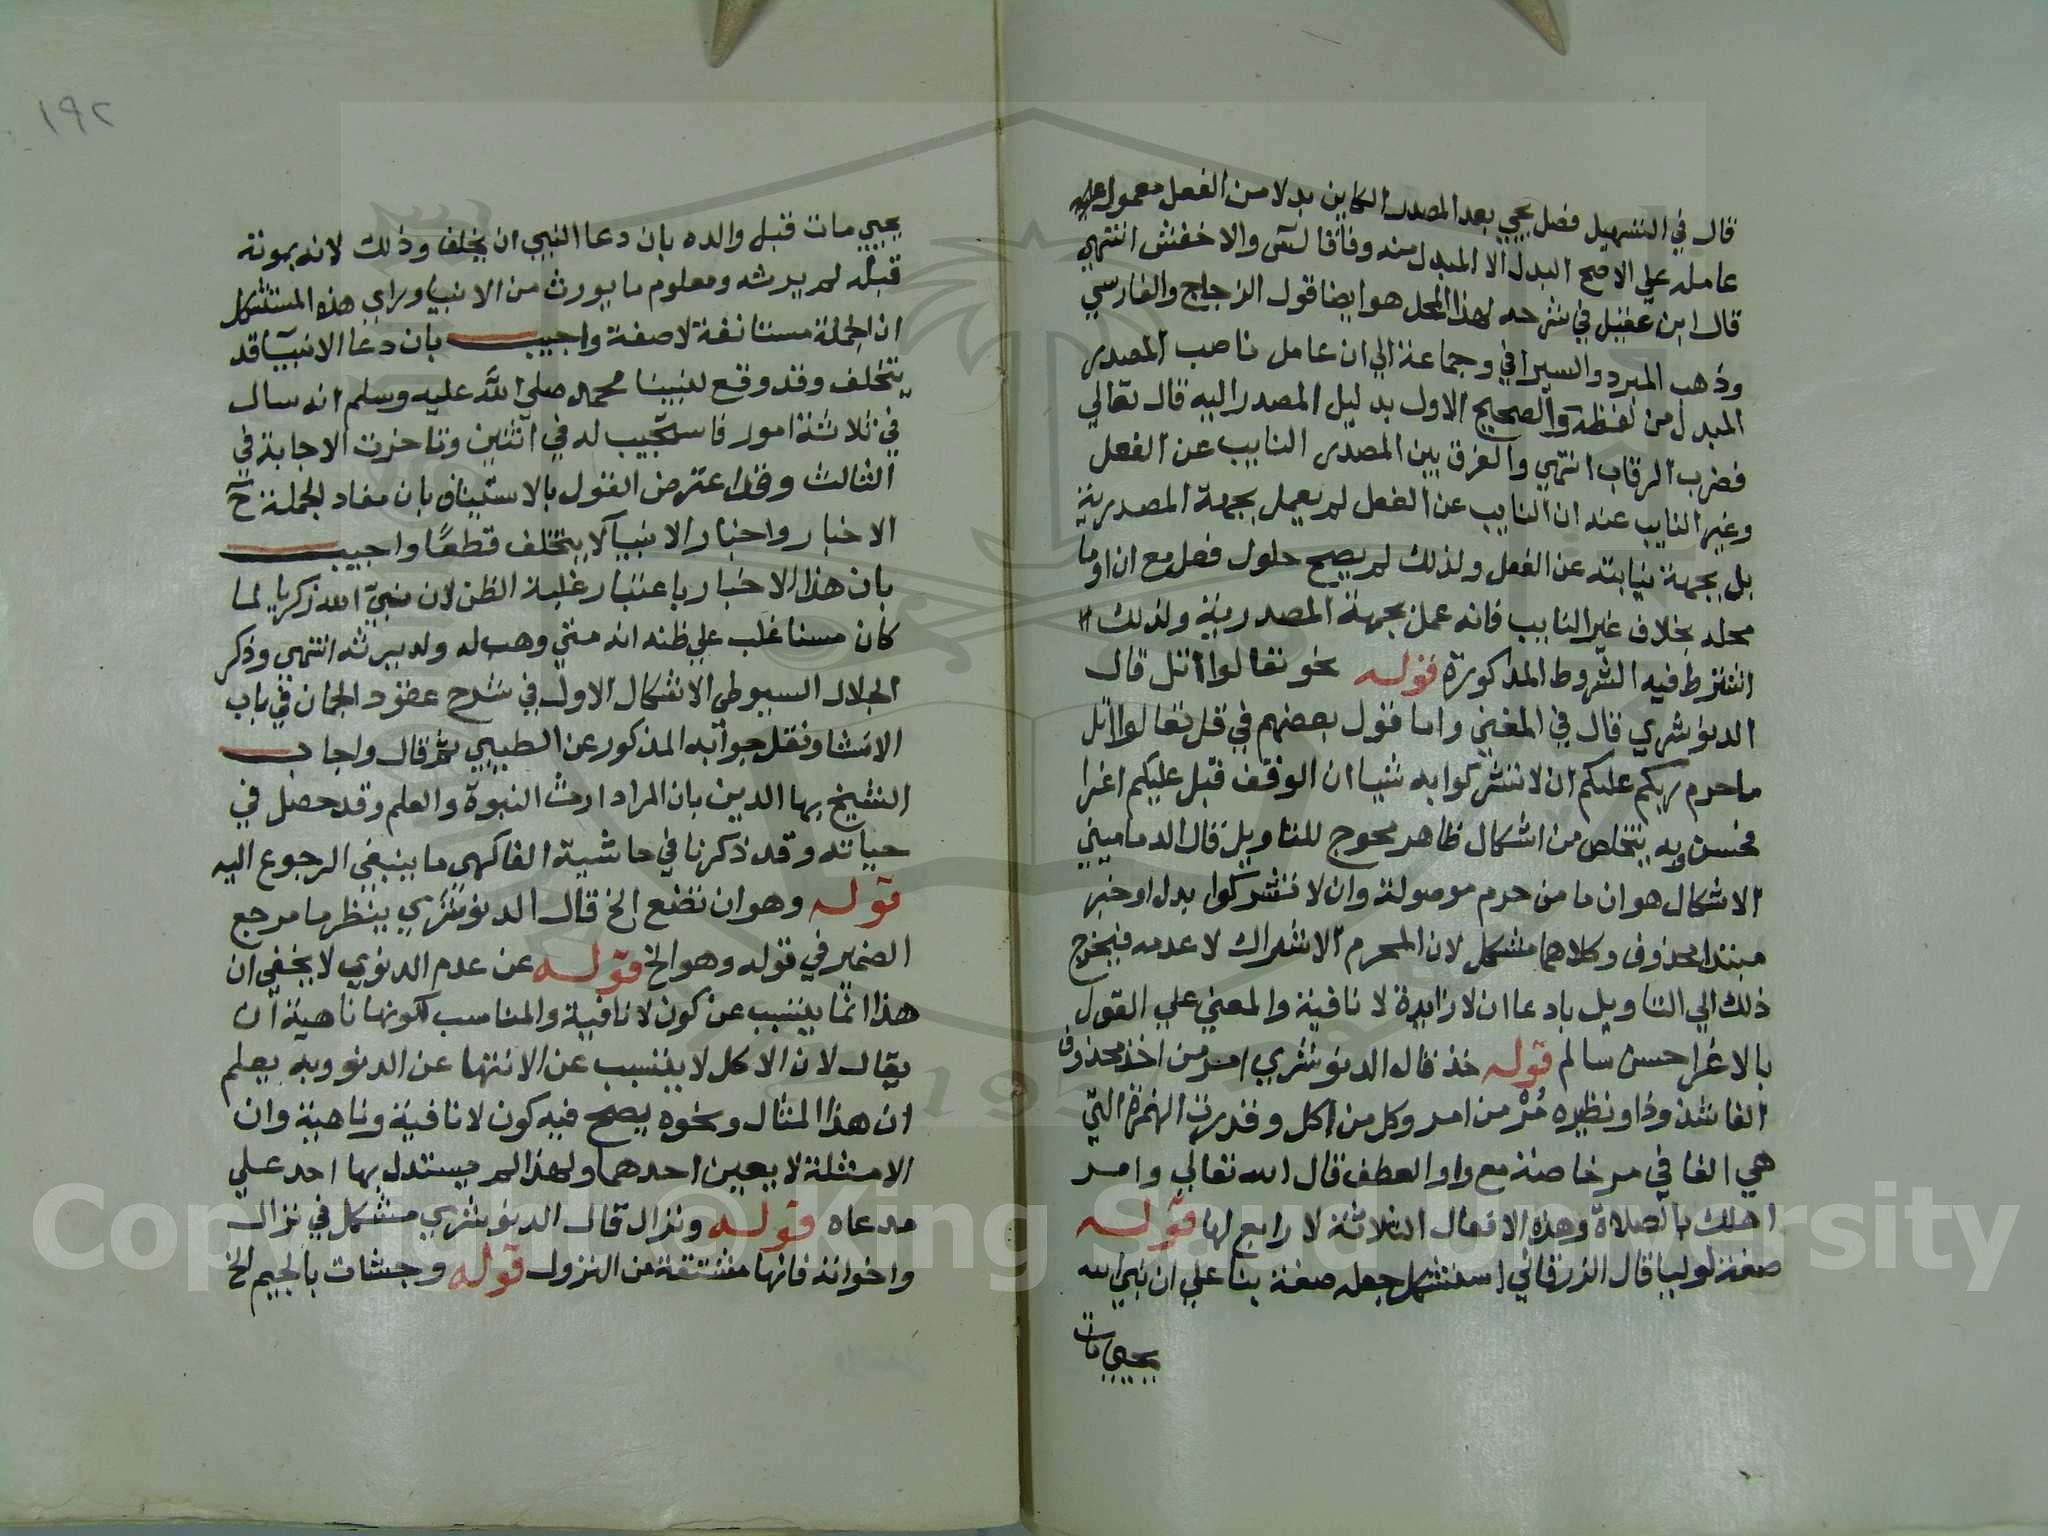 قال في التسهيل فصل يجي بعد المصدر الكاين بدلا من الفعل معمول عليه
عامله علي الاصح البدل لا المبدل منه وفاقا لس والاخفش انتهي
قال ابن عقيل في شرحه لهذا المحل هو ايضا قول الزجاج والفارسي
وذهب المبرد والسيرافي وجماعة الي ان عامل ناصب المصدر
المبدل من لفظه والصحيح الاول بدليل المصدر اليه قال تعالي
فضرب الرقاب انتهي والفرق بين المصدر النايب عن الفعل
وغير النايب عنه ان النايب عن الفعل لم يعمل بجهة المصدرية
بل بجهة نيابته عن الفعل ولذلك لم يصح حلول فعل مع ان او ما
محله بخلاف غير النايب فانه عمل بجهة المصدرية ولذلك
اشترط فيه الشروط المذكورة قوله نحو تعالوا اتل قال
الدنوشري قال في المغني واما قول بعضهم في قل تعالوا اتل
ما حرم ربكم عليكم ان لا تشركوا به شيا ان الوقف قبل عليكم اغرا
فحسن وبه يتخلص من اشكال ظاهر محوج للتاويل قال الدماميني
الاشكال هو ان ما من حرم موصولة وان لا تشركوا بدل او خبر
مبتدا محذوف وكلاهما مشكل لان المحرم الاشراك لا عدمه فيخرج
ذلك الي التاويل بادعا ان لا زايدة لا نافية والمعني علي القول
بالاغرا حسن سالم قوله خذ قاله الدنوشري امر من اخذ محذوف
الفا شذوذا ونظيره مُرْ من امر وكل من اكل وقد ردت الهمزة التي
هي الفا في مر خاصة مع واو العطف قال الله تعالي وامر
اهلك بالصلاة وهذه الافعال الثلاثة لا رابع لها قوله
صفة لوليا قال الزرقاني استشكل جعله صفة بنا علي ان نبي الله
يحيي مات
١٩٢
يحيي مات قبل والده بان دعا النبي ان يخلف وذلك لانه بموته
قبله لم يرثه ومعلوم ما يورث من الانبيا وراي هذه المستشكل
ان الجملة مستانفة لا صفة واجيب بان دعا الانبيآ قد
يتخلف وقد وقع لنبينا محمد صلي الله عليه وسلم انه سال
في ثلاثة امور فاستجيب له في اثنين وتاخرت الاجابة في
الثالث وقد اعترض القول بالاستيناف بان مفاد الجملة ح
الاخبار واخبار الانبيآ لا يتخلف قطعًا واجيب
بان هذا الاخبار باعتبار غلبة الظن لان نبيّ الله زكريا لما
كان مسنا غلب علي ظنه انه متي وهب له ولد يرثه انتهي وذكر
الجلال السيوطي الاشكال الاول في شرح عقود الجمان في باب
الانشا ونقل جوابه المذكور عن الطيبي ثم قال واجاب
الشيخ بها الدين بان المراد ارث النبوة والعلم وقد حصل في
حياته وقد ذكرنا في حاشية الفاكهي ما ينبغي الرجوع اليه
قوله وهو ان تضع الخ قال الدنوشري ينظر ما مرجع
الضمير في قوله وهو الخ قوله عن عدم الدنوي لا يخفي ان
هذا انما يتسبب عن كون لا نافية والمناسب لكونها ناهية ان
يقال لان الاكل لا يتسبب عن الانتها عن الدنو وبه يعلم
ان هذا المثال ونحوه يصح فيه كون لا نافية وناهية وان
الامثلة لا يعين احدهما ولهذا لم يستدل بها احد علي
مدعاه قوله ونزال قال الدنوشري مشكل في نزال
واخواته فانها مشتقة من النزول قوله وجشات بالجيم الخ
Copyright © King Saud University